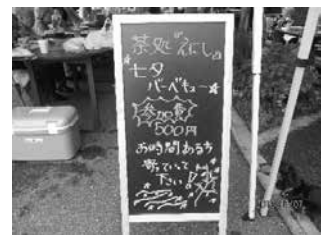 茶処 えにしの
七夕
バーベキュー
参加費
500円
お時間ある方
寄っていって
下さい